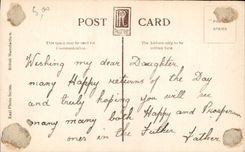 5,00
POST CARD
This space may be used for Communication.
The address only to be written here.
British Manufacture.
Real Photo Series.
Wishing my dear Daughter
many Happy returns of the Day
and truly hoping you will see
many many both Happy and Prosperous
ones in the Futher Father.